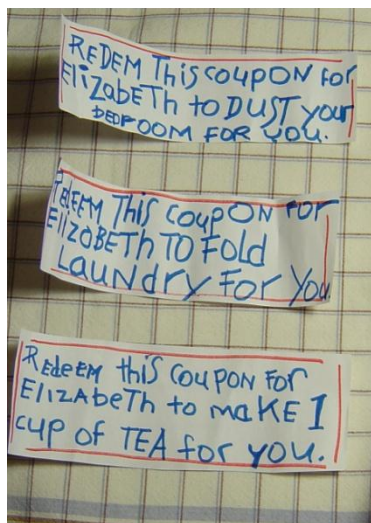 REDEM THiS COUPON FoR
ElizabeTh to DUST your
BEDROOM FOR YOU.
REDEEM THiS COUPON FOR
ElizaBETh TO FOLD
LAUNDRY FOR YOU
REdeEM thiS COUPON FOR
ElizAbeTh to maKE 1
cup of TEA for you.